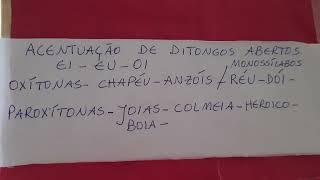 ACENTUAÇÃO DE DITONGOS ABERTOS
EI - EU - OI MONOSSÍLABOS
OXÍTONAS - CHAPÉU - ANZÓIS / RÉU - DÓI -
PAROXÍTONAS - JOIAS - COLMEIA - HEROICO -
BOIA -